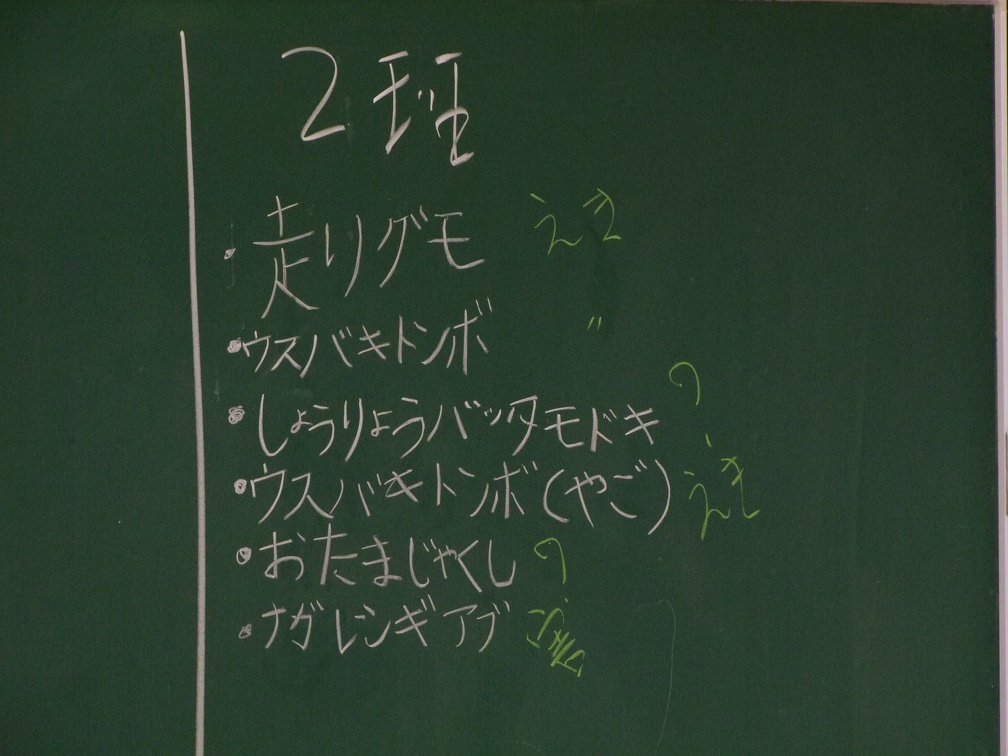 2班
・走りグモ えき
・ウスバキトンボ 〃
・しょうりょうバッタモドキ ?
・ウスバキトンボ(やご) えき
・おたまじゃくし ?
・ナガレシギアブ